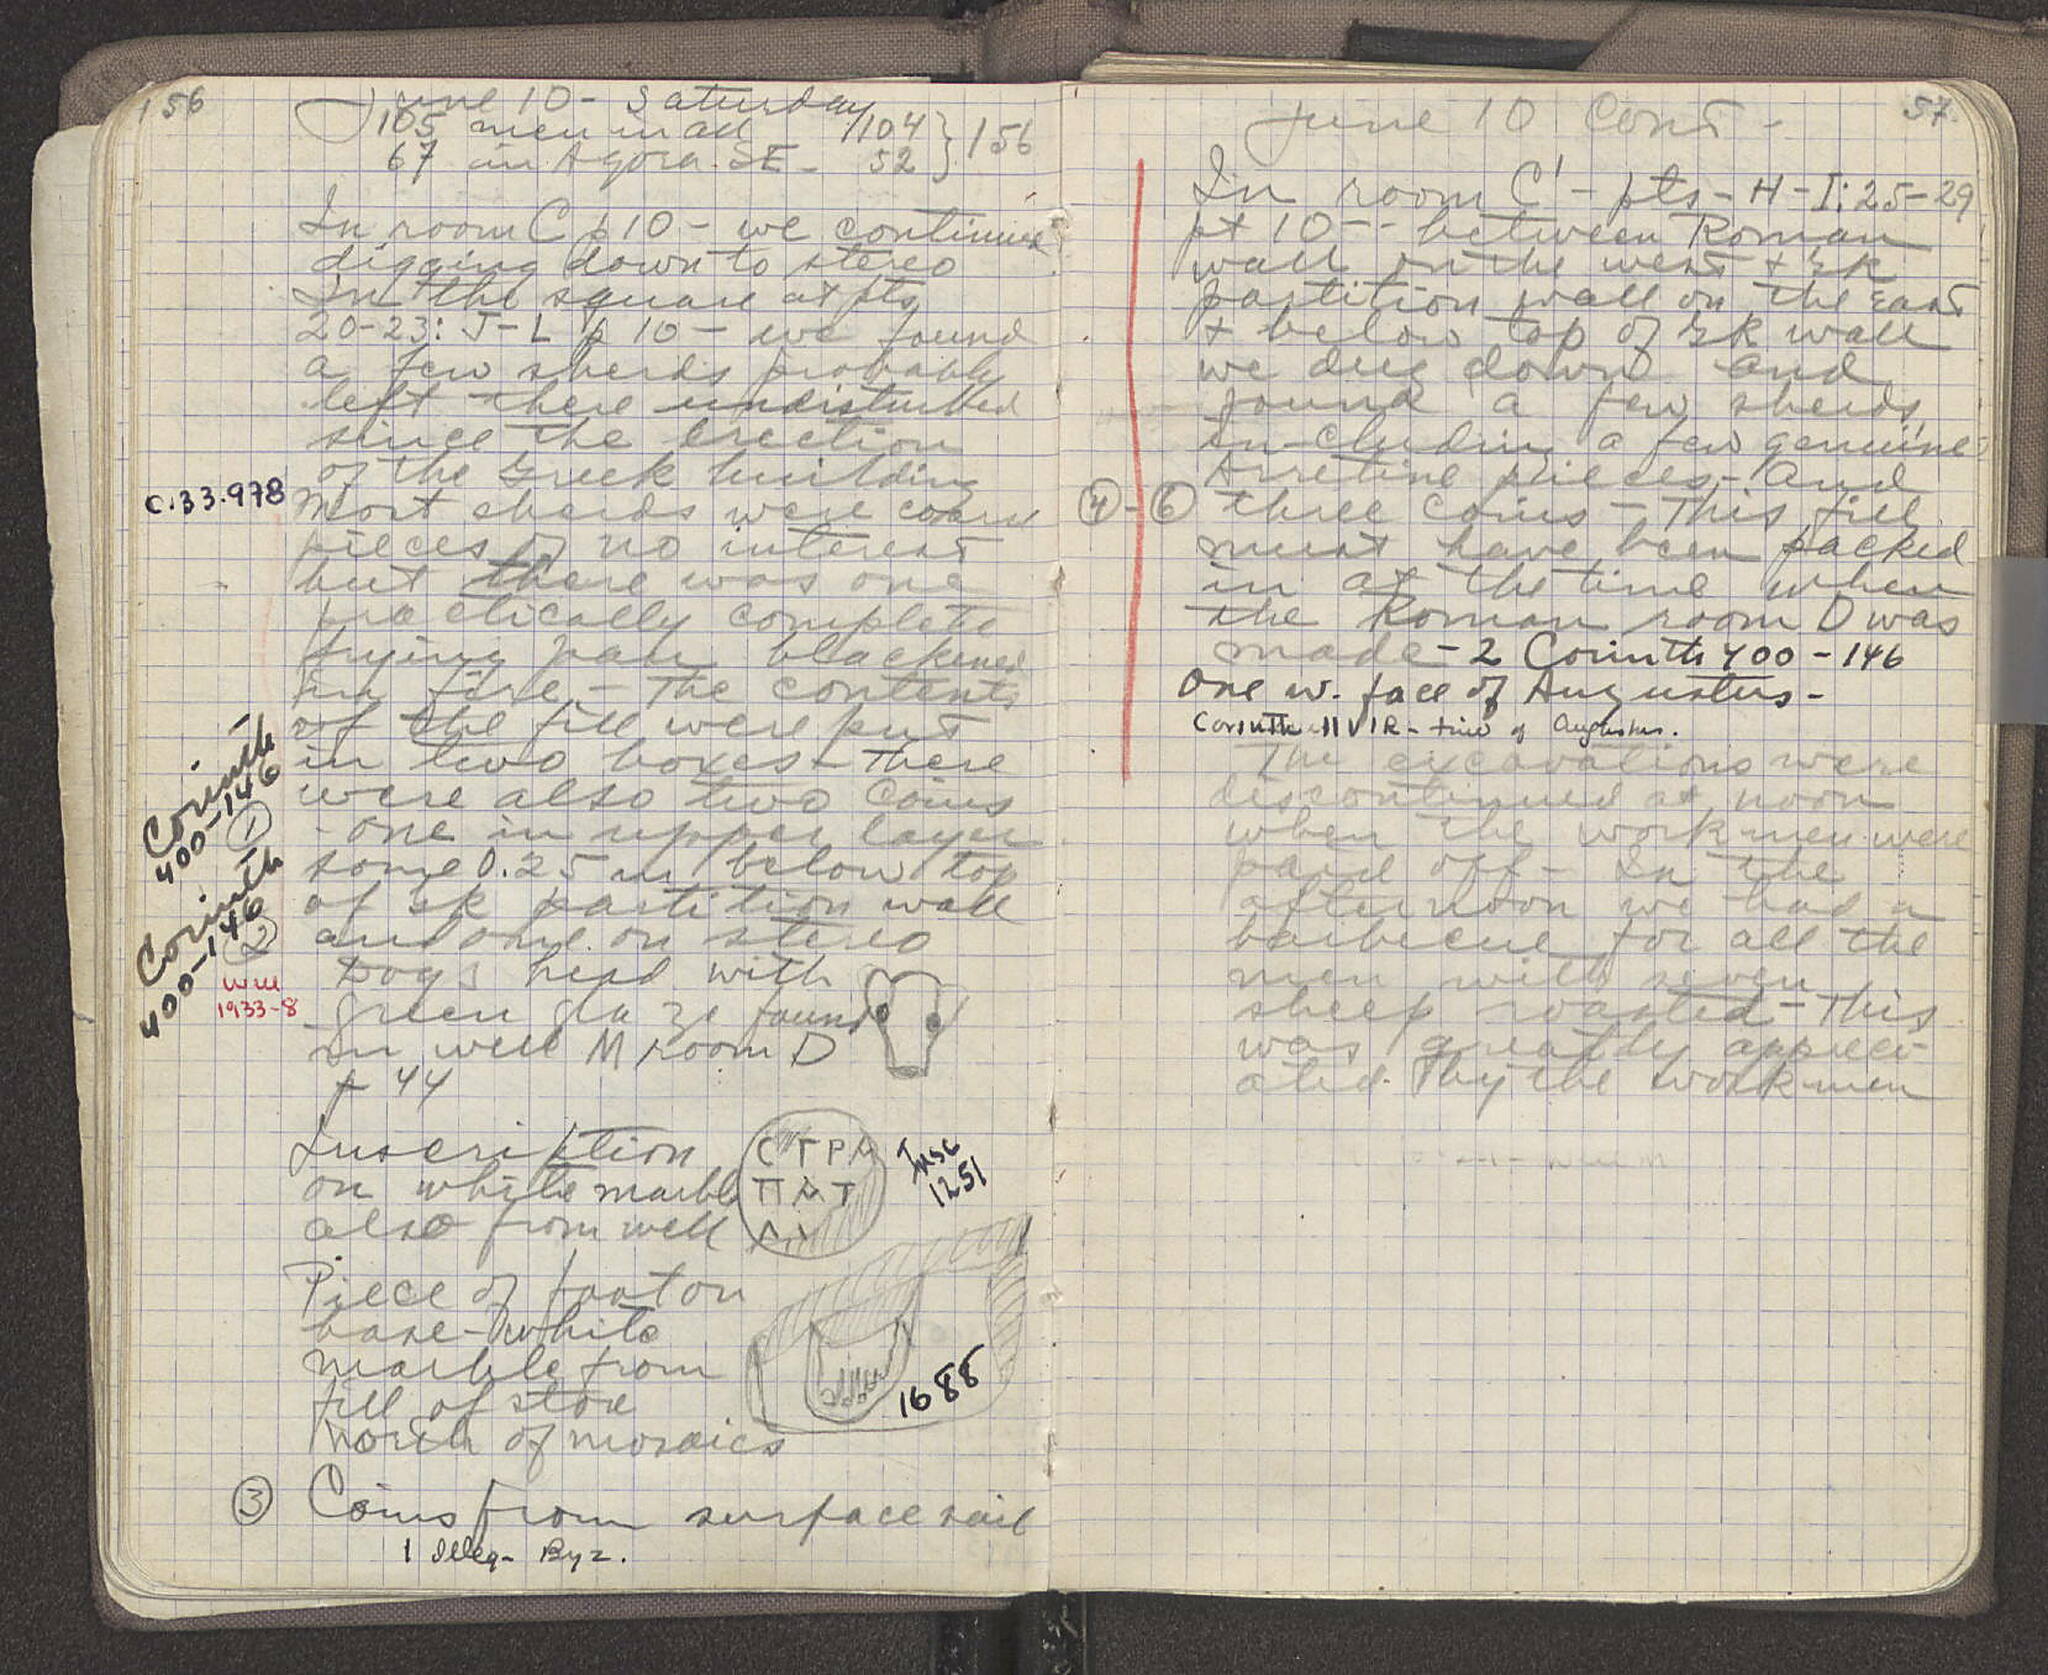 156
June 10 - Saturday
105 men in all 104 } 156
67 in Agora. SE - 52
In room C p 10 - we continued
digging down to stereo
In the square at pts
20-23: J-L p 10 - we found
a few sherds probably
left there undisturbed
since the erection
of the Greek building
C.33.978
Most sherds were coarse
pieces of no interest
but there was one
practically complete
frying pan blackened
in fire - The contents
of the fill were put
in two boxes - There
were also two coins
- one in upper layer
some 0.25 m below top
of Gk partition wall
and one on stereo
Corinth
400-146
1
Corinth
400-146
2
Well
1933-8
Dog's head with
green glaze found
in well M room D
p 44
Inscription
on white marble
also from well
C T P A
Π A T
Insc
1251
Piece of foot on
base - white
marble from
fill of store
North of mosaics
1688
3 Coins from surface soil
1 Illeg - Byz.
57
June 10 Cont -
In room C' - pts - H - I: 25-29
pt 10 - - between Roman
wall on the west + Gk
partition wall on the East
+ below top of Gk wall
we dug down and
found a few sherds,
in-cluding a few genuine
Arretine pieces - and
4 - 6 three coins - This fill
must have been packed
in at the time when
the Roman room D was
made - 2 Corinth 400 - 146
One w. face of Augustus -
Corinth II VIR - time of Augustus.
The excavations were
discontinued at noon
when the workmen were
paid off - In the
afternoon we had a
barbecue for all the
men with seven
sheep roasted - This
was greatly appreci-
ated by the workmen